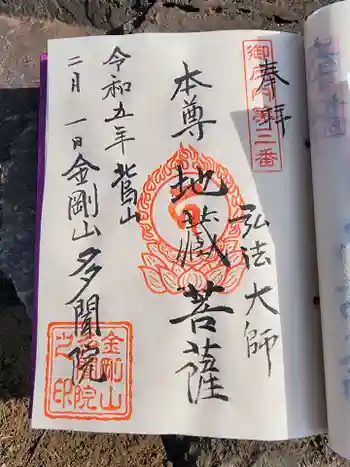 奉拝
御府内第三番
弘法大師
本尊 地蔵菩薩
令和五年 烏山
二月一日 金剛山 多聞院
金剛山
多聞院
之印